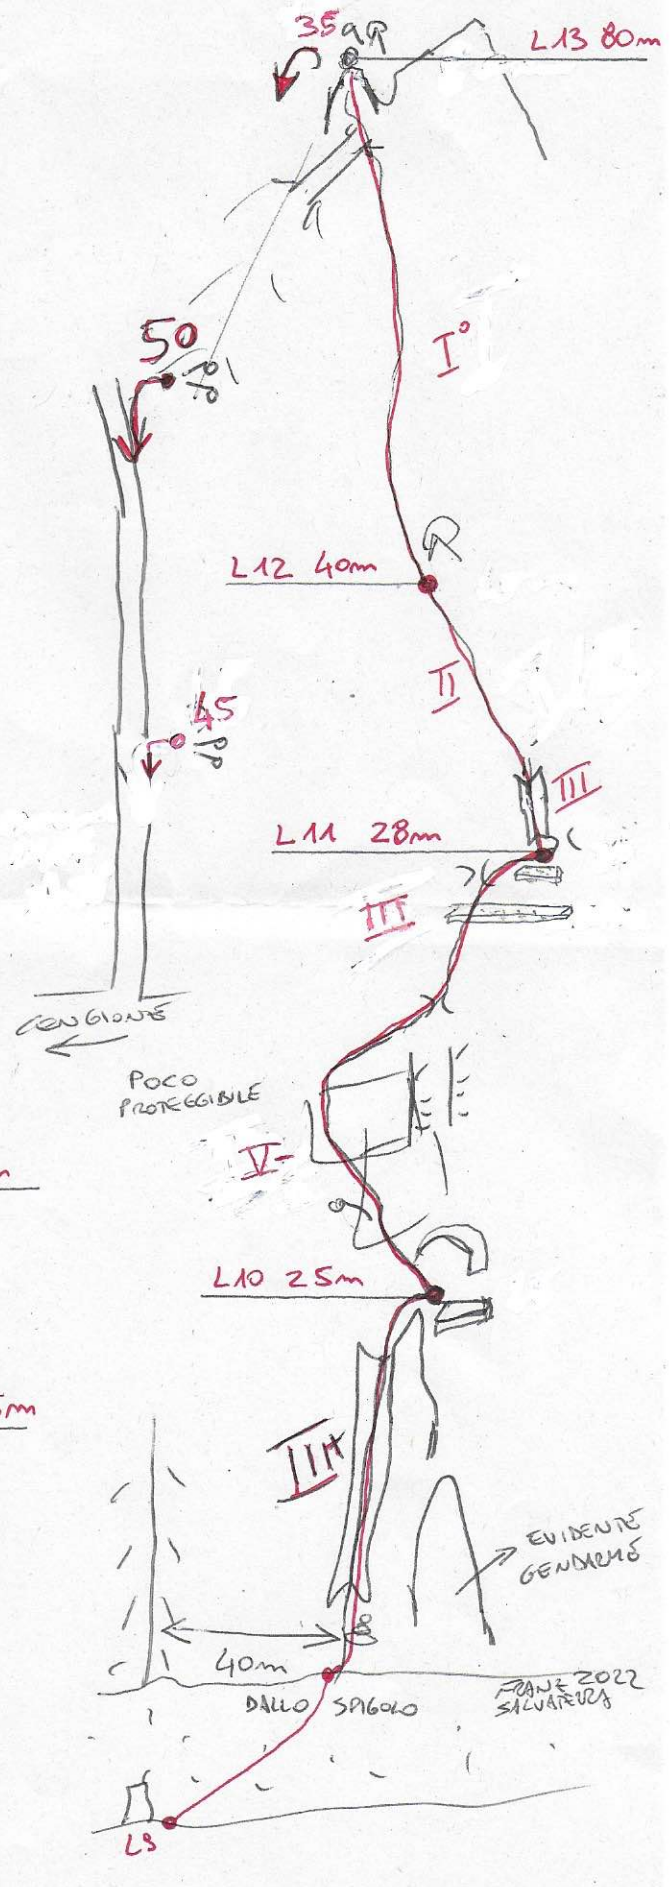 35
R
L13 80m
I°
50
R
L12 40m
II
45
III
L11 28m
III
CENGIONE
POCO
PROTEGGIBILE
V-
L10 25m
III+
EVIDENTE
GENDARME
40m
DALLO SPIGOLO
FRANZ 2022
SALVATERRA
L9